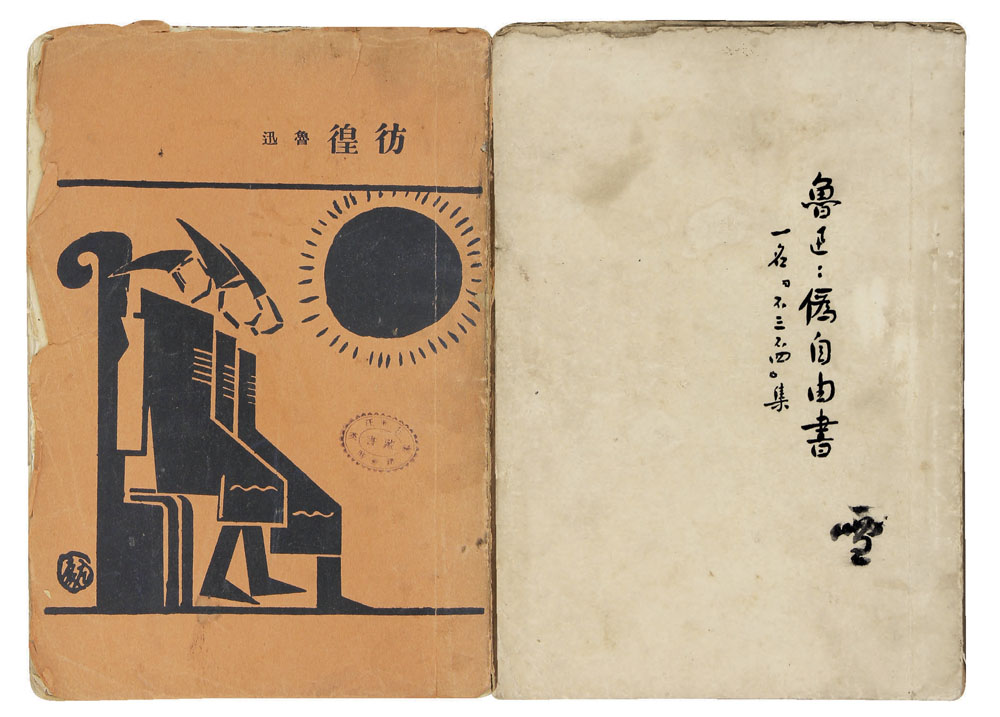 彷徨 魯迅
魯迅：偽自由書
一名「不三不四」集
雪